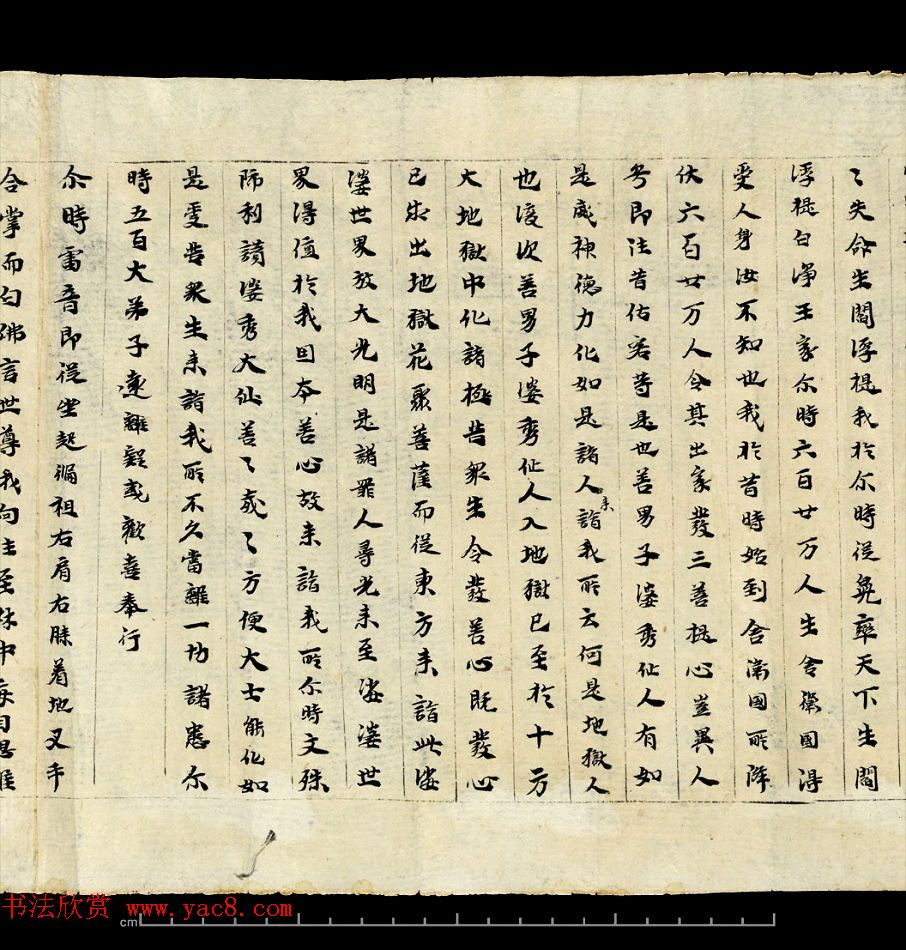 々失命生閻浮提我於尒時從兜率天下生閻
浮提白淨王家尒時六百廿万人生舍衛國得
受人身汝不知也我於昔時始到舍衛國所降
伏六百廿万人令其出家發三菩提心豈異人
号即往昔估客等是也善男子婆秀仙人有如
是威神德力化如是諸人来詣我所云何是地獄人
也復次善男子婆秀仙人入地獄已至於十方
大地獄中化諸極苦衆生令發善心既發心
已出地獄花聚菩薩而從東方来詣此娑
婆世界放大光明是諸罪人尋光来至娑婆世
界得值於我因本善心故来詣我所尒時文殊
師利讃婆秀大仙善々哉々方便大士能化如
是受苦衆生来詣我所不久當離一切諸患尒
時五百大弟子遠離疑或歡喜奉行
尒時雷音即從坐起徧袒右肩右膝着地叉手
合掌而白佛言世尊我向主至林中
书法欣赏 www.yac8.com
cm